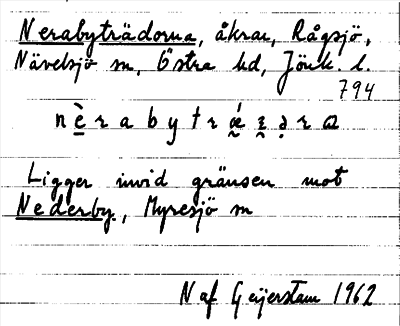 Nerabyträdorna, åkrar, Rågsjö,
Nävelsjö sn, Östra hd, Jönk. l.
794
Ligger invid gränsen mot
Nederby, Myresjö sn
N af Geijerstam 1962